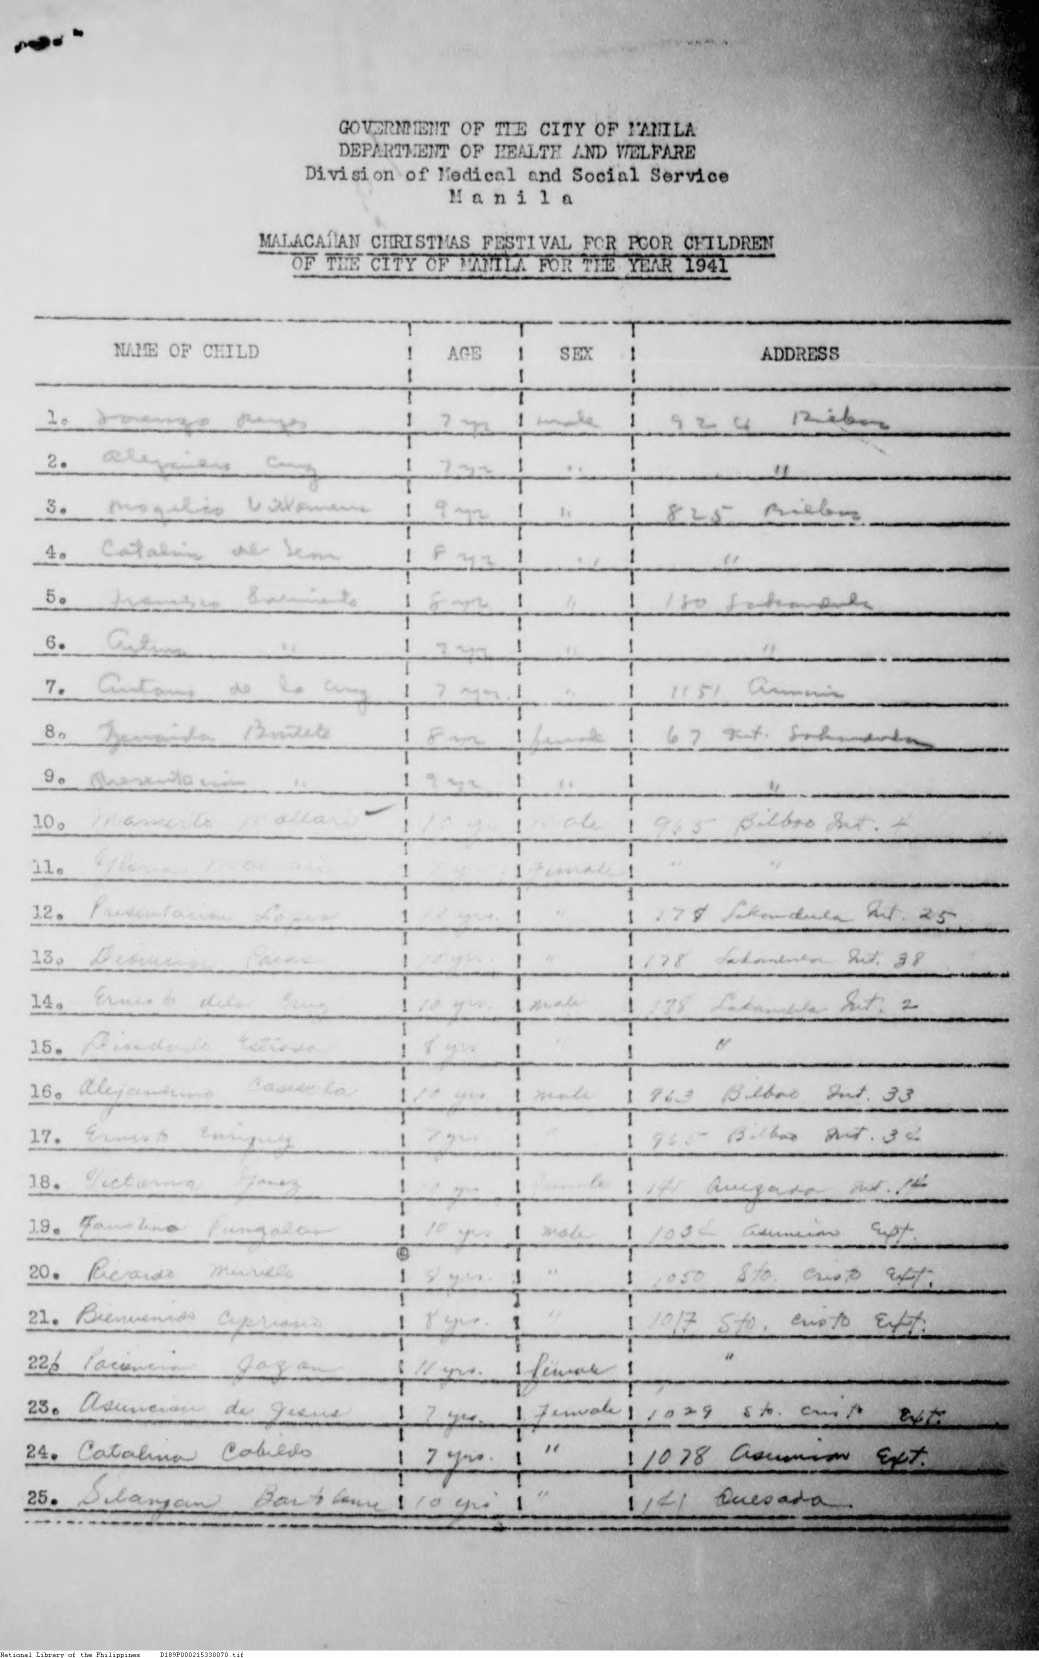 GOVERNMENT OF THE CITY OF MANILA
DEPARTMENT OF HEALTH AND WELFARE
Division of Medical and Social Service
M a n i l a
MALACAÑAN CHRISTMAS FESTIVAL FOR POOR CHILDREN
OF THE CITY OF MANILA FOR THE YEAR 1941
NAME OF CHILD AGE SEX ADDRESS
1. Lorenzo Reyes 7 yr male Bilbao
2. Cruz 7 yr " "
3. 9 yr " 825 Bilbao
4. Catalin de Leon 8 yr " "
5. Francisco Sarmiento 8 yr " 180 Lakandula
6. Arturo " 7 yr " "
7. Antonio de la Cruz 7 yr. " 1151
8. Zenaida 8 yr female 67 Int. Lakandula
9. Presentacion " 9 yr " "
10. Mamerto Mallari 10 yrs male 965 Bilbao Int. 4
11. Female " "
12. Presentacion Lopez yrs. " 178 Lakandula Int. 25
13. 10 yrs. " 178 Lakandula Int. 38
14. Ernesto dela Cruz 10 yrs. male 178 Lakandula Int. 2
15. 8 yrs " "
16. Alejandrino 10 yrs male 963 Bilbao Int. 33
17. Ernesto Enriquez 7 yrs " 965 Bilbao Int.
18. Victorina yrs female Int.
19. Faustino Pungalan 10 yrs male Asuncion Ext.
20. Ricardo 8 yrs. " 1050 Sto. Cristo Ext.
21. Bienvenido Cipriano 8 yrs. " 1017 Sto. Cristo Ext.
22. Paciencia 11 yrs. female "
23. Asuncion de Jesus 7 yrs. Female 1029 Sto. Cristo Ext.
24. Catalina Cabildo 7 yrs. " 1078 Asuncion Ext.
25. Silangan Bartolome 10 yrs " 141 Quesada
National Library of the Philippines D189P000215330070.tif